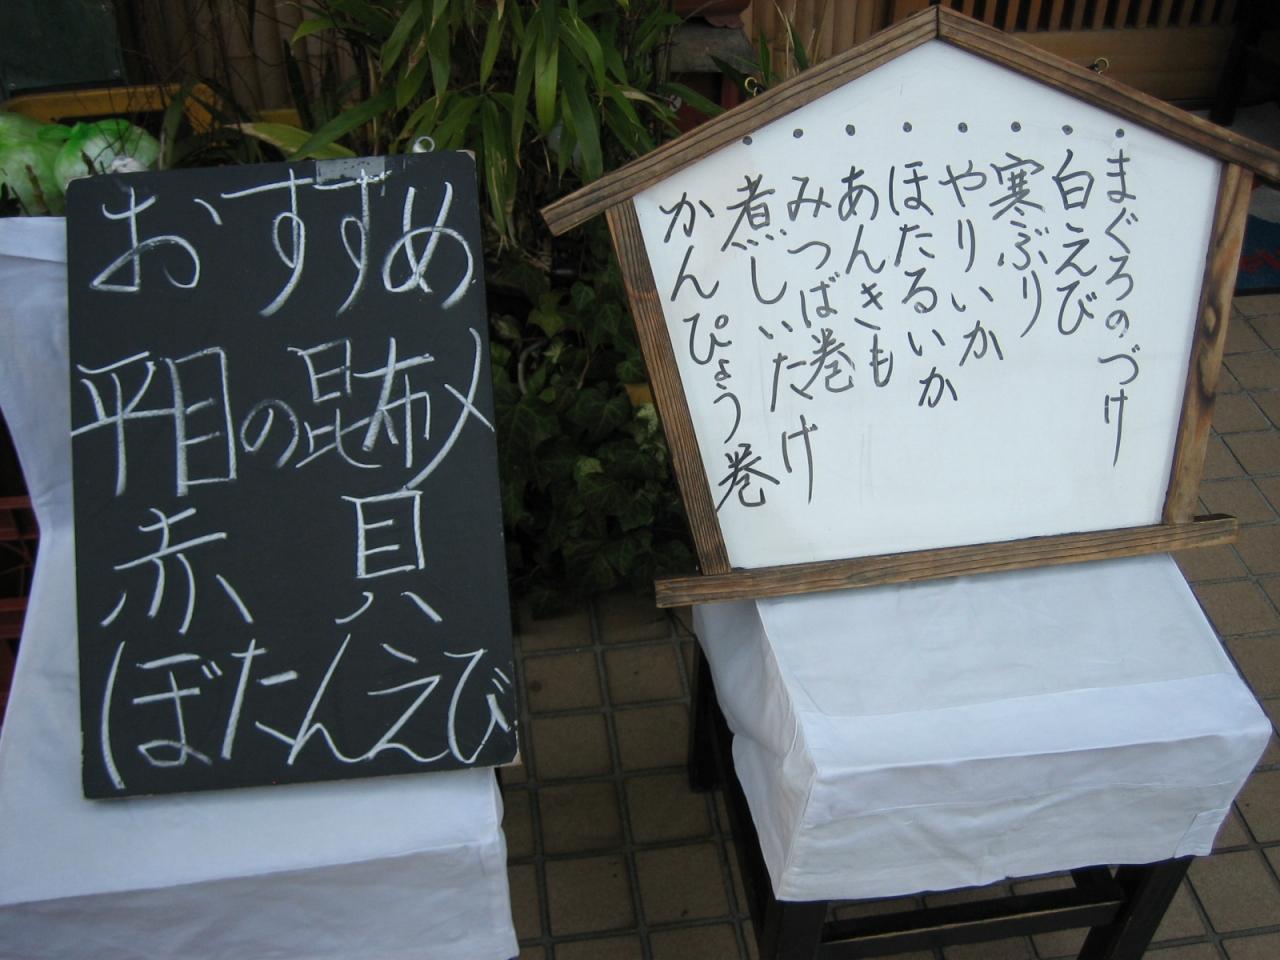 おすすめ
平目の昆布〆
赤貝
ぼたんえび
・まぐろのづけ
・白えび
・寒ぶり
・やりいか
・ほたるいか
・あんきも
・みつば巻
・煮しいたけ
かんぴょう巻